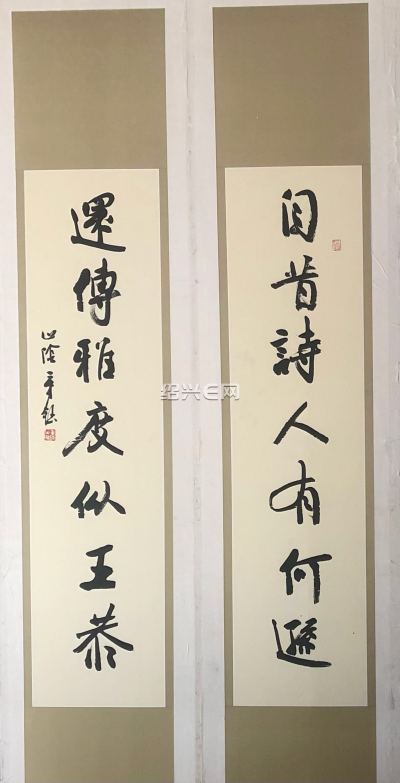 自昔詩人有何遜
還傳雅度似王恭
山陰
绍兴E网